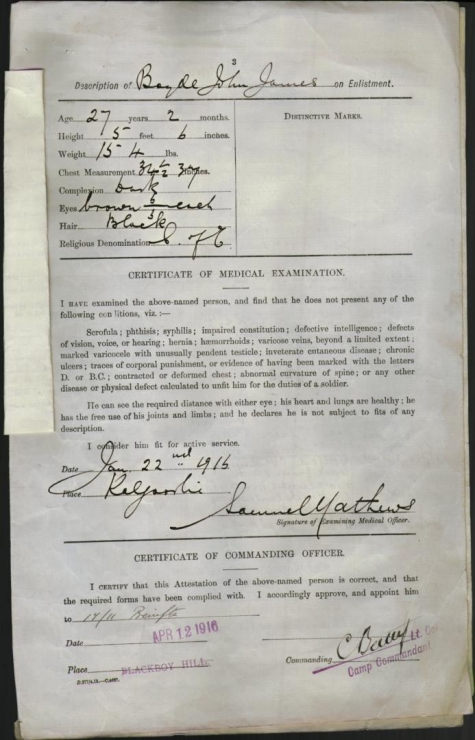 3
Description of Boyde John James on Enlistment.
Age 27 years 2 months.
Height 5 feet 6 inches.
Weight 154 lbs.
Chest Measurement 34 1/2 37 inches.
Complexion Dark
Eyes brown 6/6 each
Hair Black
Religious Denomination C. of E
DISTINCTIVE MARKS.
CERTIFICATE OF MEDICAL EXAMINATION.
I HAVE examined the above-named person, and find that he does not present any of the
following conditions, viz.:—
Scrofula; phthisis; syphilis; impaired constitution; defective intelligence; defects
of vision, voice, or hearing; hernia; hæmorrhoids; varicose veins, beyond a limited extent;
marked varicocele with unusually pendent testicle; inveterate cutaneous disease; chronic
ulcers; traces of corporal punishment, or evidence of having been marked with the letters
D. or B.C.; contracted or deformed chest; abnormal curvature of spine; or any other
disease or physical defect calculated to unfit him for the duties of a soldier.
He can see the required distance with either eye; his heart and lungs are healthy; he
has the free use of his joints and limbs; and he declares he is not subject to fits of any
description.
I consider him fit for active service.
Date Jan. 22nd 1916
Place Kalgoorlie
Samuel Mathews
Signature of Examining Medical Officer.
CERTIFICATE OF COMMANDING OFFICER.
I CERTIFY that this Attestation of the above-named person is correct, and that
the required forms have been complied with. I accordingly approve, and appoint him
to 17/11 Reinfts
Date APR 12 1916
Place BLACKBOY HILL
Commanding Lt. Col
Camp Commandant